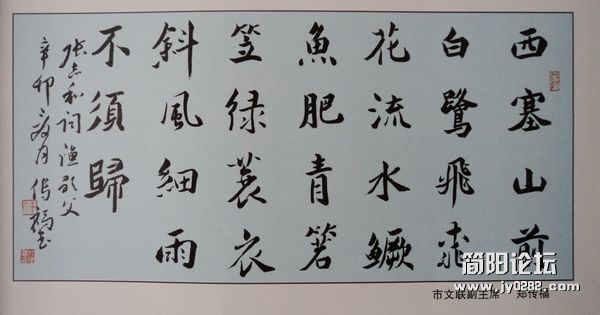 西塞山前
白鷺飛桃
花流水鱖
魚肥青箬
笠綠蓑衣
斜風細雨
不須歸
張志和词渔歌父
辛卯夏月 傳福书
市文联副主席 郑传福
简阳论坛
www.jy0282.com